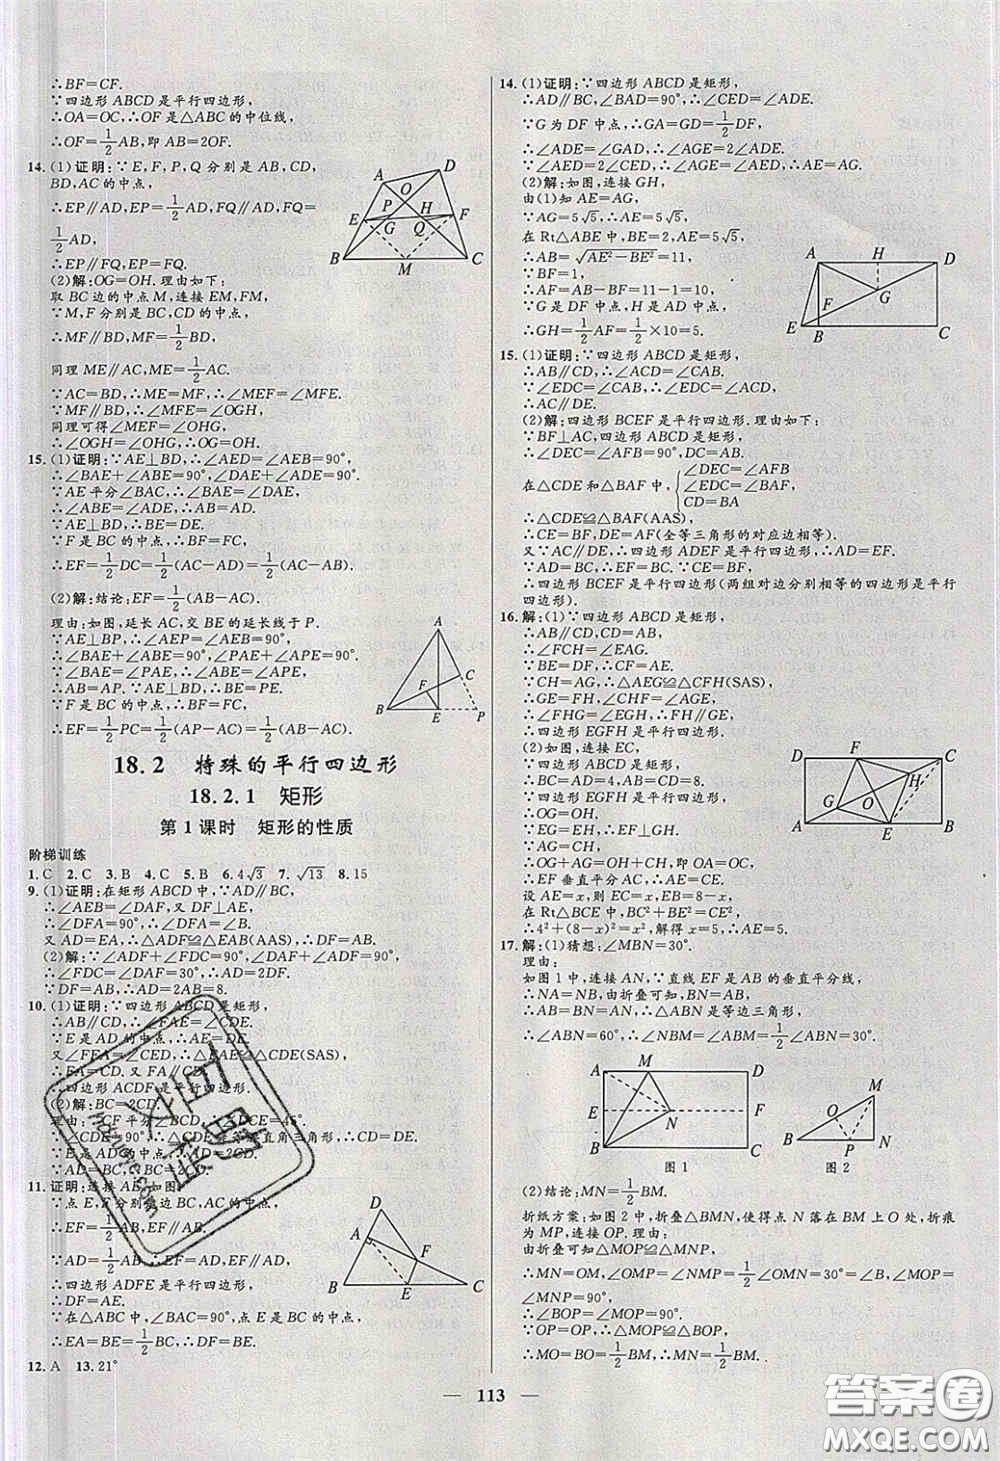 ∴BF=CF.
∵四边形ABCD是平行四边形,
∴OA=OC,∴OF是△ABC的中位线,
∴OF=1/2AB,即AB=2OF.
14.(1)证明:∵E,F,P,Q分别是AB,CD,
BD,AC的中点,
∴EP∥AD,EP=1/2AD,FQ∥AD,FQ=
1/2AD,
∴EP∥FQ,EP=FQ.
(2)解:OG=OH.理由如下:
取BC边的中点M,连接EM,FM,
∵M,F分别是BC,CD的中点,
∴MF∥BD,MF=1/2BD,
同理ME∥AC,ME=1/2AC.
∵AC=BD,∴ME=MF,∴∠MEF=∠MFE.
∵MF∥BD,∴∠MFE=∠OGH,
同理可得∠MEF=∠OHG,
∴∠OGH=∠OHG,∴OG=OH.
A D O P H E G Q F B M C
15.(1)证明:∵AE⊥BD,∴∠AED=∠AEB=90°,
∴∠BAE+∠ABE=90°,∠DAE+∠ADE=90°.
∵AE平分∠BAC,∴∠BAE=∠DAE,
∴∠ABE=∠ADE,∴AB=AD.
∵AE⊥BD,∴BE=DE.
∵F是BC的中点,∴BF=FC,
∴EF=1/2DC=1/2(AC−AD)=1/2(AC−AB).
(2)解:结论:EF=1/2(AB−AC).
理由:如图,延长AC,交BE的延长线于P.
∵AE⊥BP,∴∠AEP=∠AEB=90°,
∴∠BAE+∠ABE=90°,∠PAE+∠APE=90°.
∵∠BAE=∠PAE,∴∠ABE=∠APE,
∴AB=AP.∵AE⊥BP,∴BE=PE.
∵F是BC的中点,∴BF=FC,
∴EF=1/2PC=1/2(AP−AC)=1/2(AB−AC).
A F C B E P
18.2 特殊的平行四边形
18.2.1 矩形
第1课时 矩形的性质
阶梯训练
1.C 2.C 3.B 4.C 5.B 6.4√3 7.√13 8.15
9.(1)证明:在矩形ABCD中,∵AD∥BC,
∴∠AEB=∠DAF,又DF⊥AE,
∴∠DFA=90°,∴∠DFA=∠B.
又AD=EA,∴△ADF≌△EAB(AAS),∴DF=AB.
(2)解:∵∠ADF+∠FDC=90°,∠DAF+∠ADF=90°,
∴∠FDC=∠DAF=30°,∴AD=2DF.
∵DF=AB,∴AD=2AB=8.
10.(1)证明:∵四边形ABCD是矩形,
∴AB∥CD,∴∠FAE=∠CDE.
∵E是AD的中点,∴AE=DE.
又∠FEA=∠CED,∴△FAE≌△CDE(SAS),
∴FA=CD.又FA∥CD,
∴四边形ACDF是平行四边形.
(2)解:BC=2CD.
理由:∵CF平分∠BCD,∴∠DCE=45°.
∵∠CDE=90°,∴△CDE是等腰直角三角形,∴CD=DE.
∵E是AD的中点,∴AD=2CD.
∵AD=BC,∴BC=2CD.
11.证明:连接AE,如图.
∵点E,F分别是边BC,AC的中点,
∴EF=1/2AB,EF∥AB.
∵AD=1/2AB,∴EF=AD,EF∥AD,
∴四边形ADFE是平行四边形,
∴DF=AE.
∵在△ABC中,∠BAC=90°,点E是BC的中点,
∴EA=BE=1/2BC,∴DF=BE.
A F B E C
12.A 13.21°
14.(1)证明:∵四边形ABCD是矩形,
∴AD∥BC,∠BAD=90°,∴∠CED=∠ADE.
∵G为DF中点,∴GA=GD=1/2DF,
∴∠ADE=∠GAD,∴∠AGE=2∠ADE.
∵∠AED=2∠CED,∴∠AED=∠AGE.
(2)解:如图,连接GH,
由(1)知AE=AG,
∵AG=5√5,∴AE=AG=5√5,
在Rt△ABE中,BE=2,
∴AB=√AE²−BE²=11,
∵BF=1,
∴AF=AB−BF=11−1=10,
∵G是DF中点,H是AD中点,
∴GH=1/2AF=1/2×10=5.
A H D G F E B C
15.(1)证明:∵四边形ABCD是矩形,
∴AB∥CD,∴∠ACD=∠CAB.
∵∠EDC=∠CAB,∴∠EDC=∠ACD,
∴AC∥DE.
(2)解:四边形BCEF是平行四边形.理由如下:
∵BF⊥AC,四边形ABCD是矩形,
∴∠DEC=∠AFB=90°,DC=AB.
在△CDE和△BAF中,{∠DEC=∠AFB
∠EDC=∠BAF
CD=BA
∴△CDE≌△BAF(AAS),
∴CE=BF,DE=AF(全等三角形的对应边相等).
又∵AC∥DE,∴四边形ADEF是平行四边形,∴AD=EF.
∵AD=BC,∴EF=BC.∵CE=BF,
∴四边形BCEF是平行四边形(两组对边分别相等的四边形是平行
四边形).
16.解:(1)∵四边形ABCD是矩形,
∴AB∥CD,CD=AB,
∴∠FCH=∠EAG.
∵BE=DF,∴CF=AE.
∵CH=AG,∴△AEG≌△CFH(SAS),
∴GE=FH,∠CHF=∠AGE,
∴∠FHG=∠EGH,∴FH∥GE,
∴四边形EGFH是平行四边形.
(2)如图,连接EC,
∵四边形ABCD是矩形,
∴BC=AD=4,CD=AB=8.
∵四边形EGFH是平行四边形,
∴OG=OH,OE=OF.
∵EG=EH,∴EF⊥GH.
∵AG=CH,
∴AG+OG=OH+CH,即OA=OC,
∴EF垂直平分AC,∴AE=CE.
设AE=x,则CE=x,BE=8−x,
在Rt△BCE中,BC²+BE²=CE²,
∴4²+(8−x)²=x²,解得x=5,∴AE=5.
D F C H G O A E B
17.解:(1)猜想:∠MBN=30°.
理由:
如图1中,连接AN,∵直线EF是AB的垂直平分线,
∴NA=NB,由折叠可知,BN=AB,
∴AB=BN=AN,∴△ABN是等边三角形,
∴∠ABN=60°,∴∠NBM=∠ABM=1/2∠ABN=30°.
A M D E F N B C
图1
M O B P N
图2
(2)结论:MN=1/2BM.
折纸方案:如图2中,折叠△BMN,使得点N落在BM上O处,折痕
为MP,连接OP.理由:
由折叠可知△MOP≌△MNP,
∴MN=OM,∠OMP=∠NMP=1/2∠OMN=30°=∠B,∠MOP=
∠MNP=90°,
∴∠BOP=∠MOP=90°.
∵OP=OP,∴△MOP≌△BOP,
∴MO=BO=1/2BM,∴MN=1/2BM.
— 113 —
答案圈
MXQE.COM